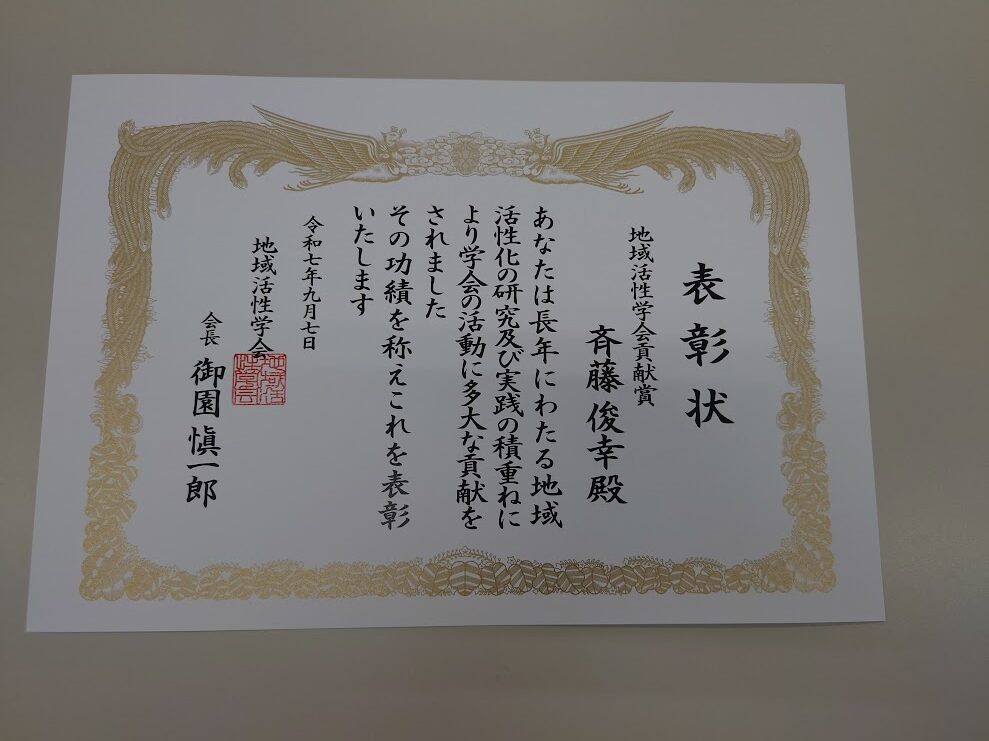 表彰状
地域活性学会貢献賞
斉藤俊幸殿
あなたは長年にわたる地域
活性化の研究及び実践の積重ねに
より学会の活動に多大な貢献を
されました
その功績を称えこれを表彰
いたします
令和七年九月七日
地域活性学会
会長 御園慎一郎